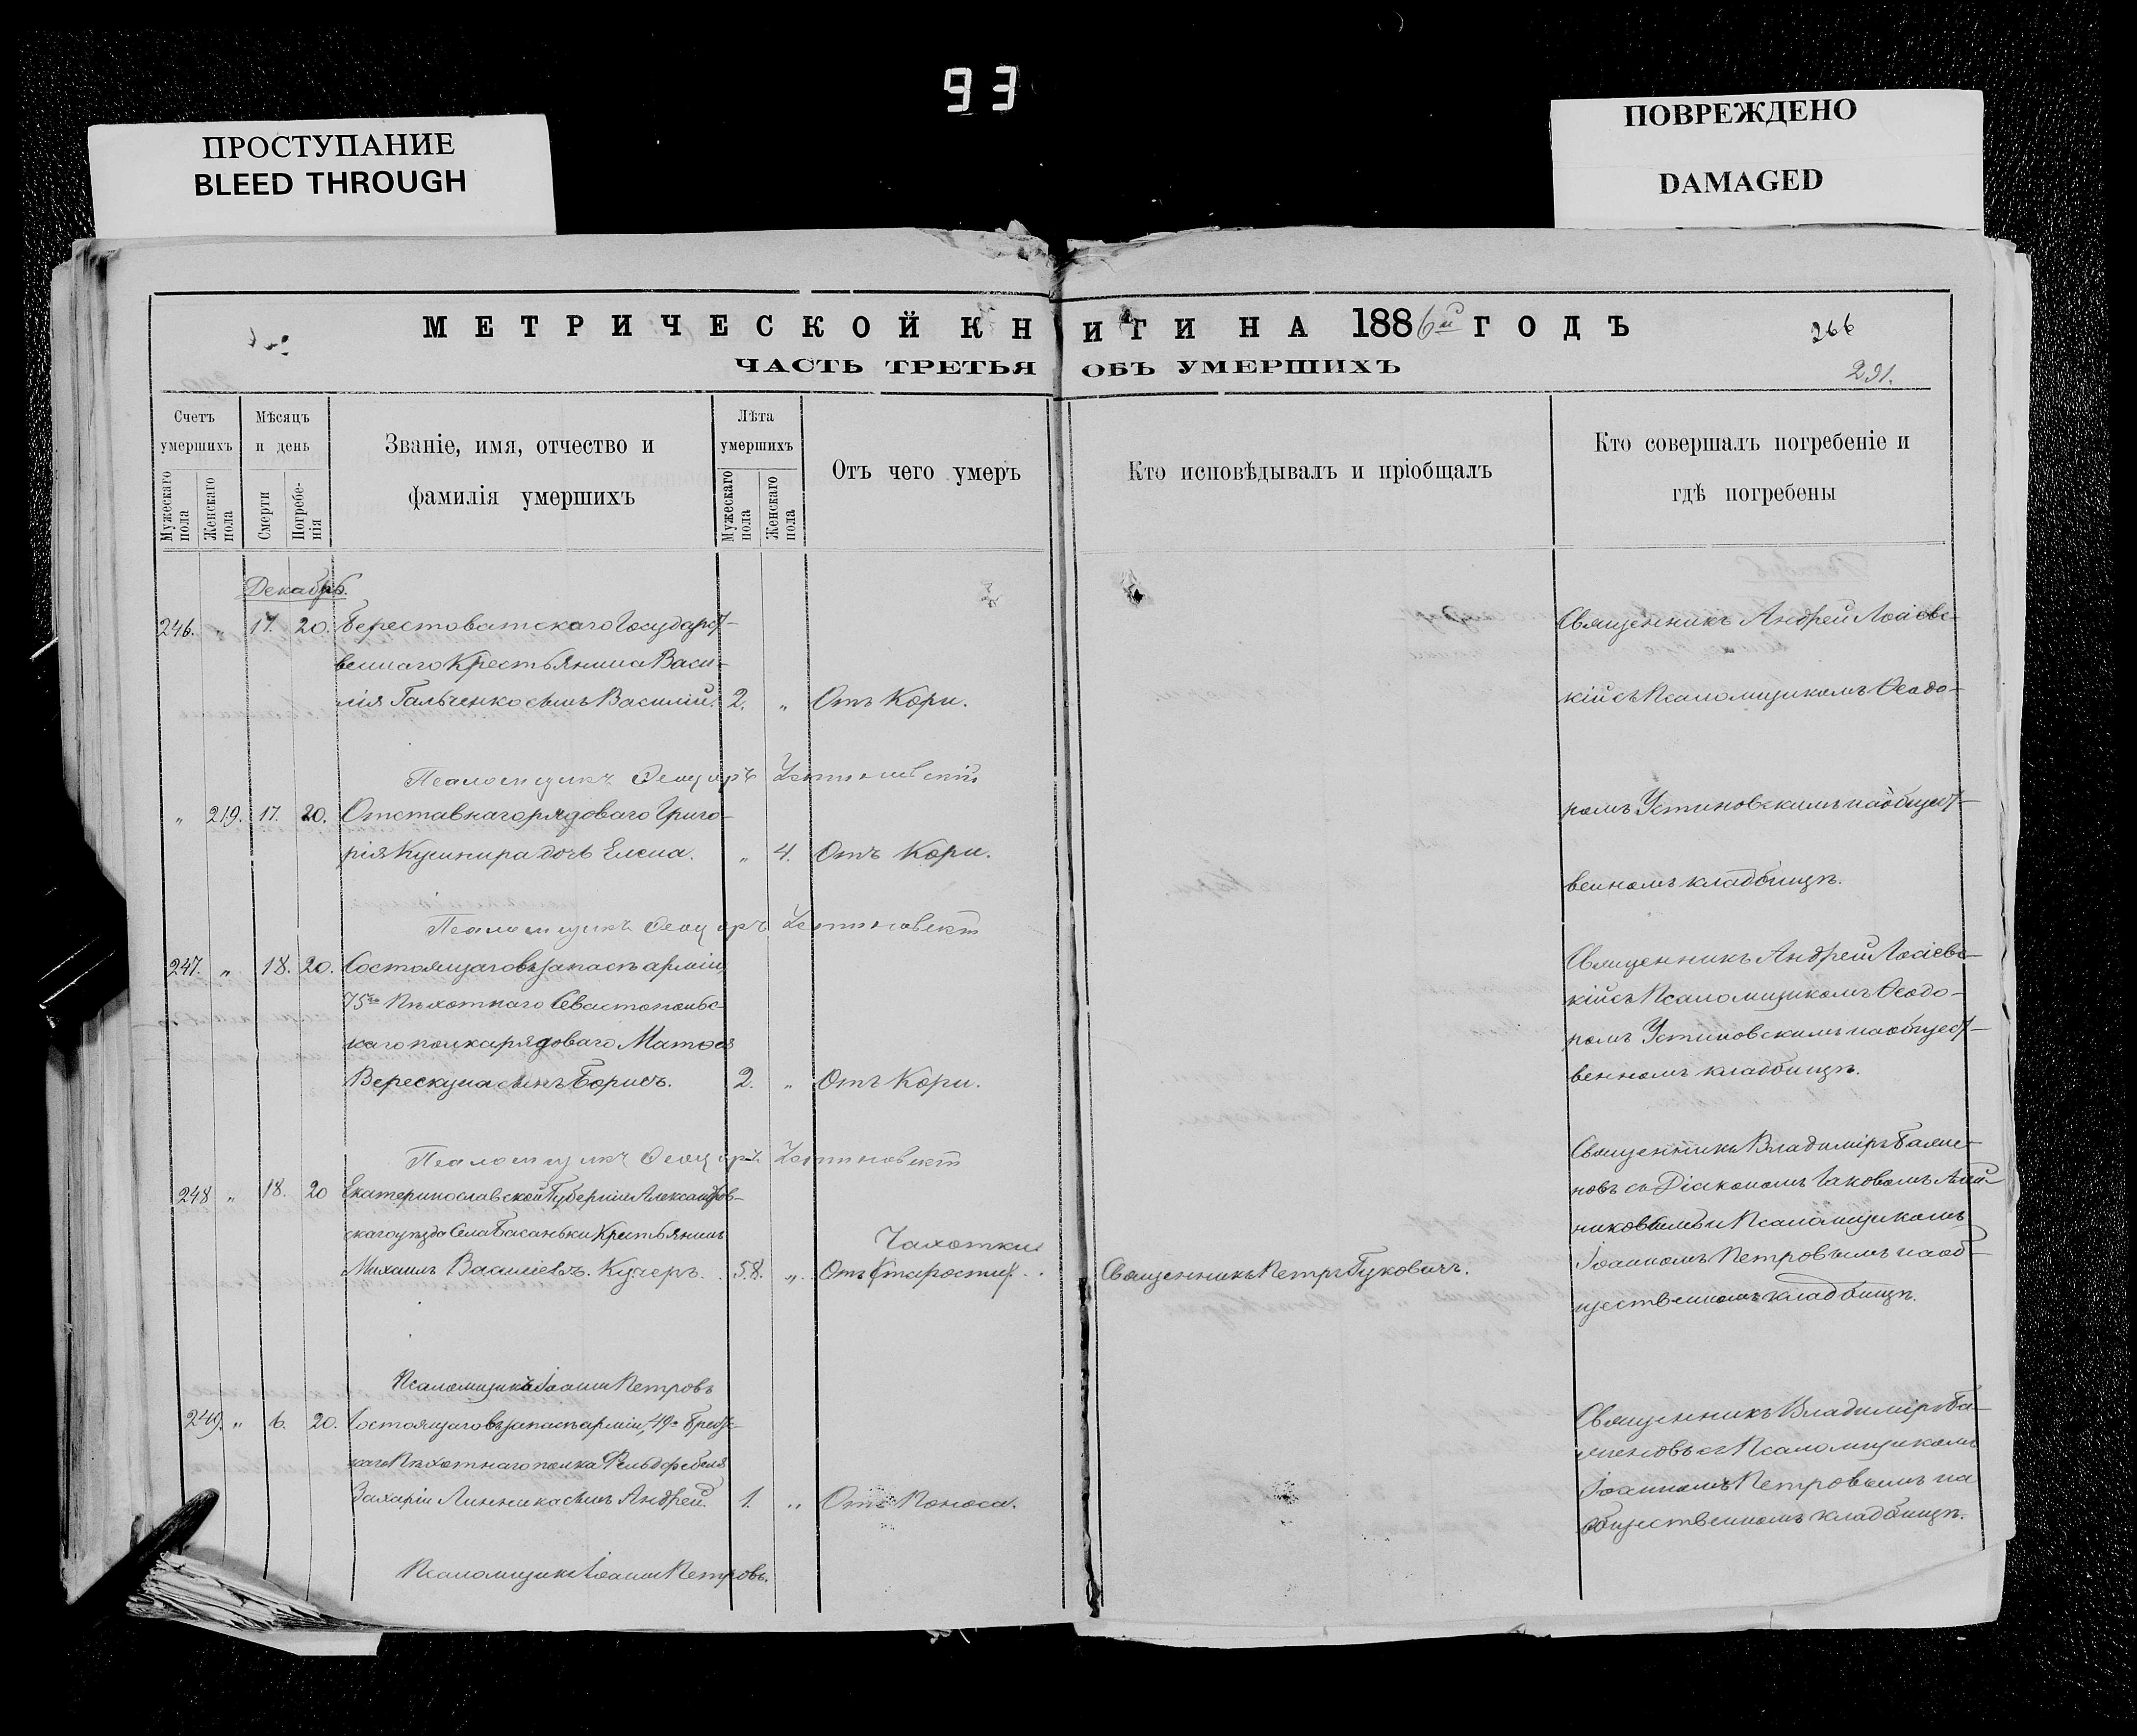 93
ПРОСТУПАНИЕ
BLEED THROUGH
ПОВРЕЖДЕНО
DAMAGED
МЕТРИЧЕСКОЙ КНИГИ НА 1886й ГОДЪ
266
ЧАСТЬ ТРЕТЬЯ ОБЪ УМЕРШИХЪ
291.
Счетъ умершихъ
Мужескаго пола
Женскаго пола
Мѣсяцъ и день
Смерти
Погребенія
Званіе, имя, отчество и
фамилія умершихъ
Лѣта умершихъ
Мужескаго пола
Женскаго пола
Отъ чего умеръ
Кто исповѣдывалъ и пріобщалъ
Кто совершалъ погребеніе и
гдѣ погребены
Декабрь.
246. " 17. 20. Берестоватскаго Государст-
веннаго Крестьянина Васи-
лія Гальченко сынъ Василій. 2. " Отъ Кори.
Священникъ Андрей
кій съ Псаломщикомъ Ѳеодо-
ромъ Устиновскимъ на общест-
венномъ кладбищѣ.
Псаломщикъ Ѳеодоръ Устиновскій
" 219. 17. 20. Отставнаго рядоваго Григо-
рія Кушнира дочь Елена. " 4. Отъ Кори.
Псаломщикъ Ѳеодоръ Устиновскій
247. " 18. 20. Состоящаго въ запасѣ арміи,
75го Пѣхотнаго Севастопольс-
каго полка рядоваго Матѳея
Верескуна сынъ Борисъ. 2. " Отъ Кори.
Священникъ Андрей
кій съ Псаломщикомъ Ѳеодо-
ромъ Устиновскимъ на общест-
венномъ кладбищѣ.
Псаломщикъ Ѳеодоръ Устиновскій
248 " 18. 20 Екатеринославской Губерніи Александров-
скаго уѣзда Села Басаньки Крестьянинъ
Михаилъ Василіевъ Кучеръ. 58. " Отъ (старости).
Чахотки
Священникъ Петръ Буковичъ.
Священникъ Владиміръ
новъ съ Діакономъ Іаковомъ
и Псаломщикомъ
Іоанномъ Петровымъ на об-
щественномъ кладбищѣ.
Псаломщикъ Іоаннъ Петровъ
249. " 6. 20. Состоящаго въ запасѣ арміи, 49го Брест-
каго Пѣхотнаго полка Фельдфебеля
Захаріи Линника сынъ Андрей. 1. " Отъ Поноса.
Священникъ Владиміръ
съ Псаломщикомъ
Іоанномъ Петровымъ на
общественномъ кладбищѣ.
Псаломщикъ Іоаннъ Петровъ.